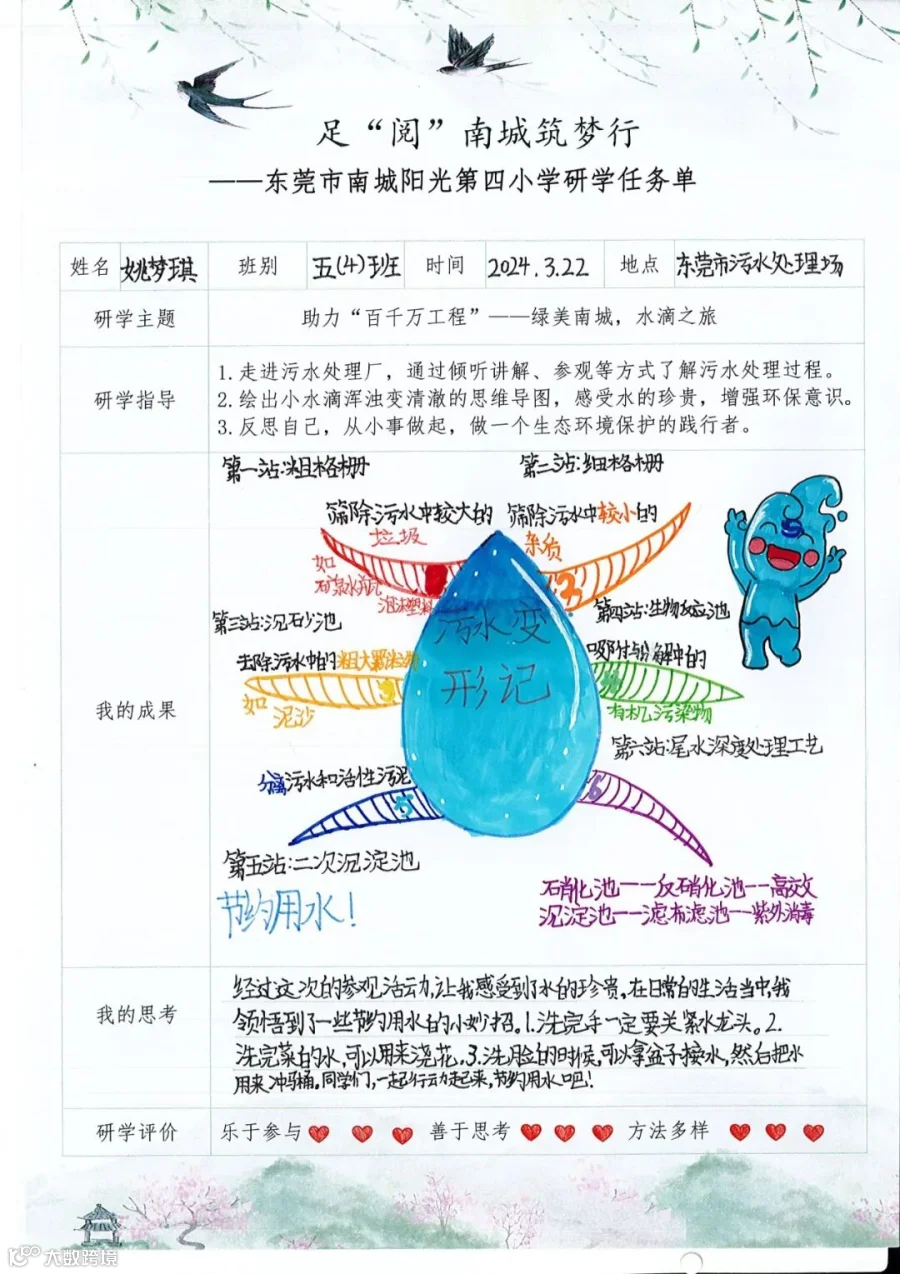 足“阅”南城筑梦行
——东莞市南城阳光第四小学研学任务单
姓名 姚梦琪 班别 五(4)班 时间 2024.3.22 地点 东莞市污水处理场
研学主题 助力“百千万工程”——绿美南城，水滴之旅
研学指导
1.走进污水处理厂，通过倾听讲解、参观等方式了解污水处理过程。
2.绘出小水滴浑浊变清澈的思维导图，感受水的珍贵，增强环保意识。
3.反思自己，从小事做起，做一个生态环境保护的践行者。
我的成果
第一站:粗格栅
筛除污水中较大的
垃圾
如
矿泉水瓶
泡沫塑料
第二站:细格栅
筛除污水中较小的
杂质
2
污水变
形记
第三站:沉砂池
去除污水中的粗大颗粒物
3
如 泥沙
第四站:生物反应池
吸附与分解中的
有机污染物
分离污水和活性污泥
5
第五站:二次沉淀池
第六站:尾水深度处理工艺
6
硝化池——反硝化池——高效
沉淀池——滤布滤池——紫外消毒
节约用水!
我的思考
经过这次的参观活动,让我感受到了水的珍贵,在日常的生活当中,我
领悟到了一些节约用水的小妙招。1.洗完手一定要关紧水龙头。2.
洗完菜的水,可以用来浇花。3.洗脸的时候,可以拿盆子接水,然后把水
用来冲马桶。同学们,一起行动起来,节约用水吧!
研学评价 乐于参与 善于思考 方法多样
大数跨境